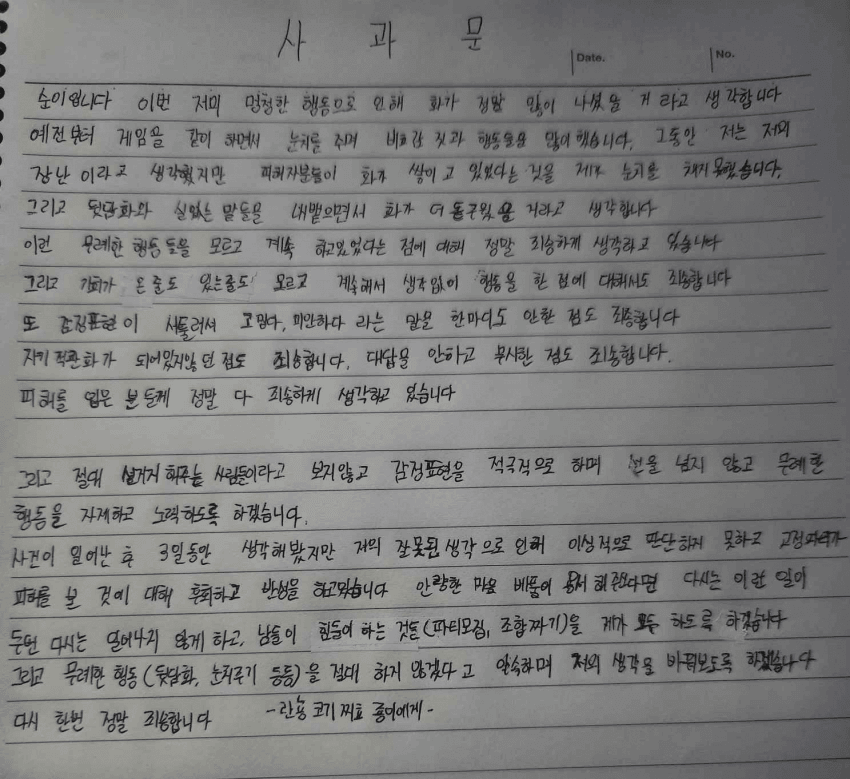 사 과 문
Date.
No.
순이입니다 이번 저의 멍청한 행동으로 인해 화가 정말 많이 나셨을 거라고 생각합니다
예전부터 게임을 같이 하면서 눈치를 주며 비호감 짓과 행동들을 많이했습니다. 그동안 저는 저의
장난이라고 생각했지만 피해자분들이 화가 쌓이고 있었다는 것을 제가 눈치를 채지 못했습니다.
그리고 뒷담화와 실없는 말들을 내뱉으면서 화가 더 돋구웠을 거라고 생각합니다
이런 무례한 행동들을 모르고 계속 하고있었다는 점에 대해 정말 죄송하게 생각라고 있습니다
그리고 기회가 온줄도 있는줄도 모르고 계속해서 생각없이 행동을 한 점에 대해서도 죄송합니다
또 감정표현이 서툴러서 고맙다, 미안하다 라는 말을 한마디도 안한 점도 죄송합니다
자기 객관화가 되어있지않던 점도 죄송합니다. 대답을 안하고 무시한 점도 죄송합니다.
피해를 입은 분들께 정말 다 죄송하게 생각하고 있습니다
그리고 절대 설거지 해주는 사람들이라고 보지않고 감정표현을 적극적으로 하며 선을 넘지 않고 무례한
행동을 자제하고 노력하도록 하겠습니다.
사건이 일어난 후 3일동안 생각해봤지만 저의 잘못된 생각으로 인해 이성적으로 판단하지 못하고 고정파티가
피해를 본 것에 대해 후회하고 반성을 하고있습니다 안량한 마음 베품이 용서 해주신다면 다시는 이런 일이
두번 다시는 일어나지 않게 하고, 남들이 힘들어 하는 것들(파티모집, 조합짜기)을 제가 모두 하도록 하겠습니다
그리고 무례한 행동(뒷담화, 눈치주기 등등)을 절대 하지 않겠다고 약속하며 저의 생각을 바꿔보도록 하겠습니다
다시 한번 정말 죄송합니다 -간능 코기 찌효 룡이에게-